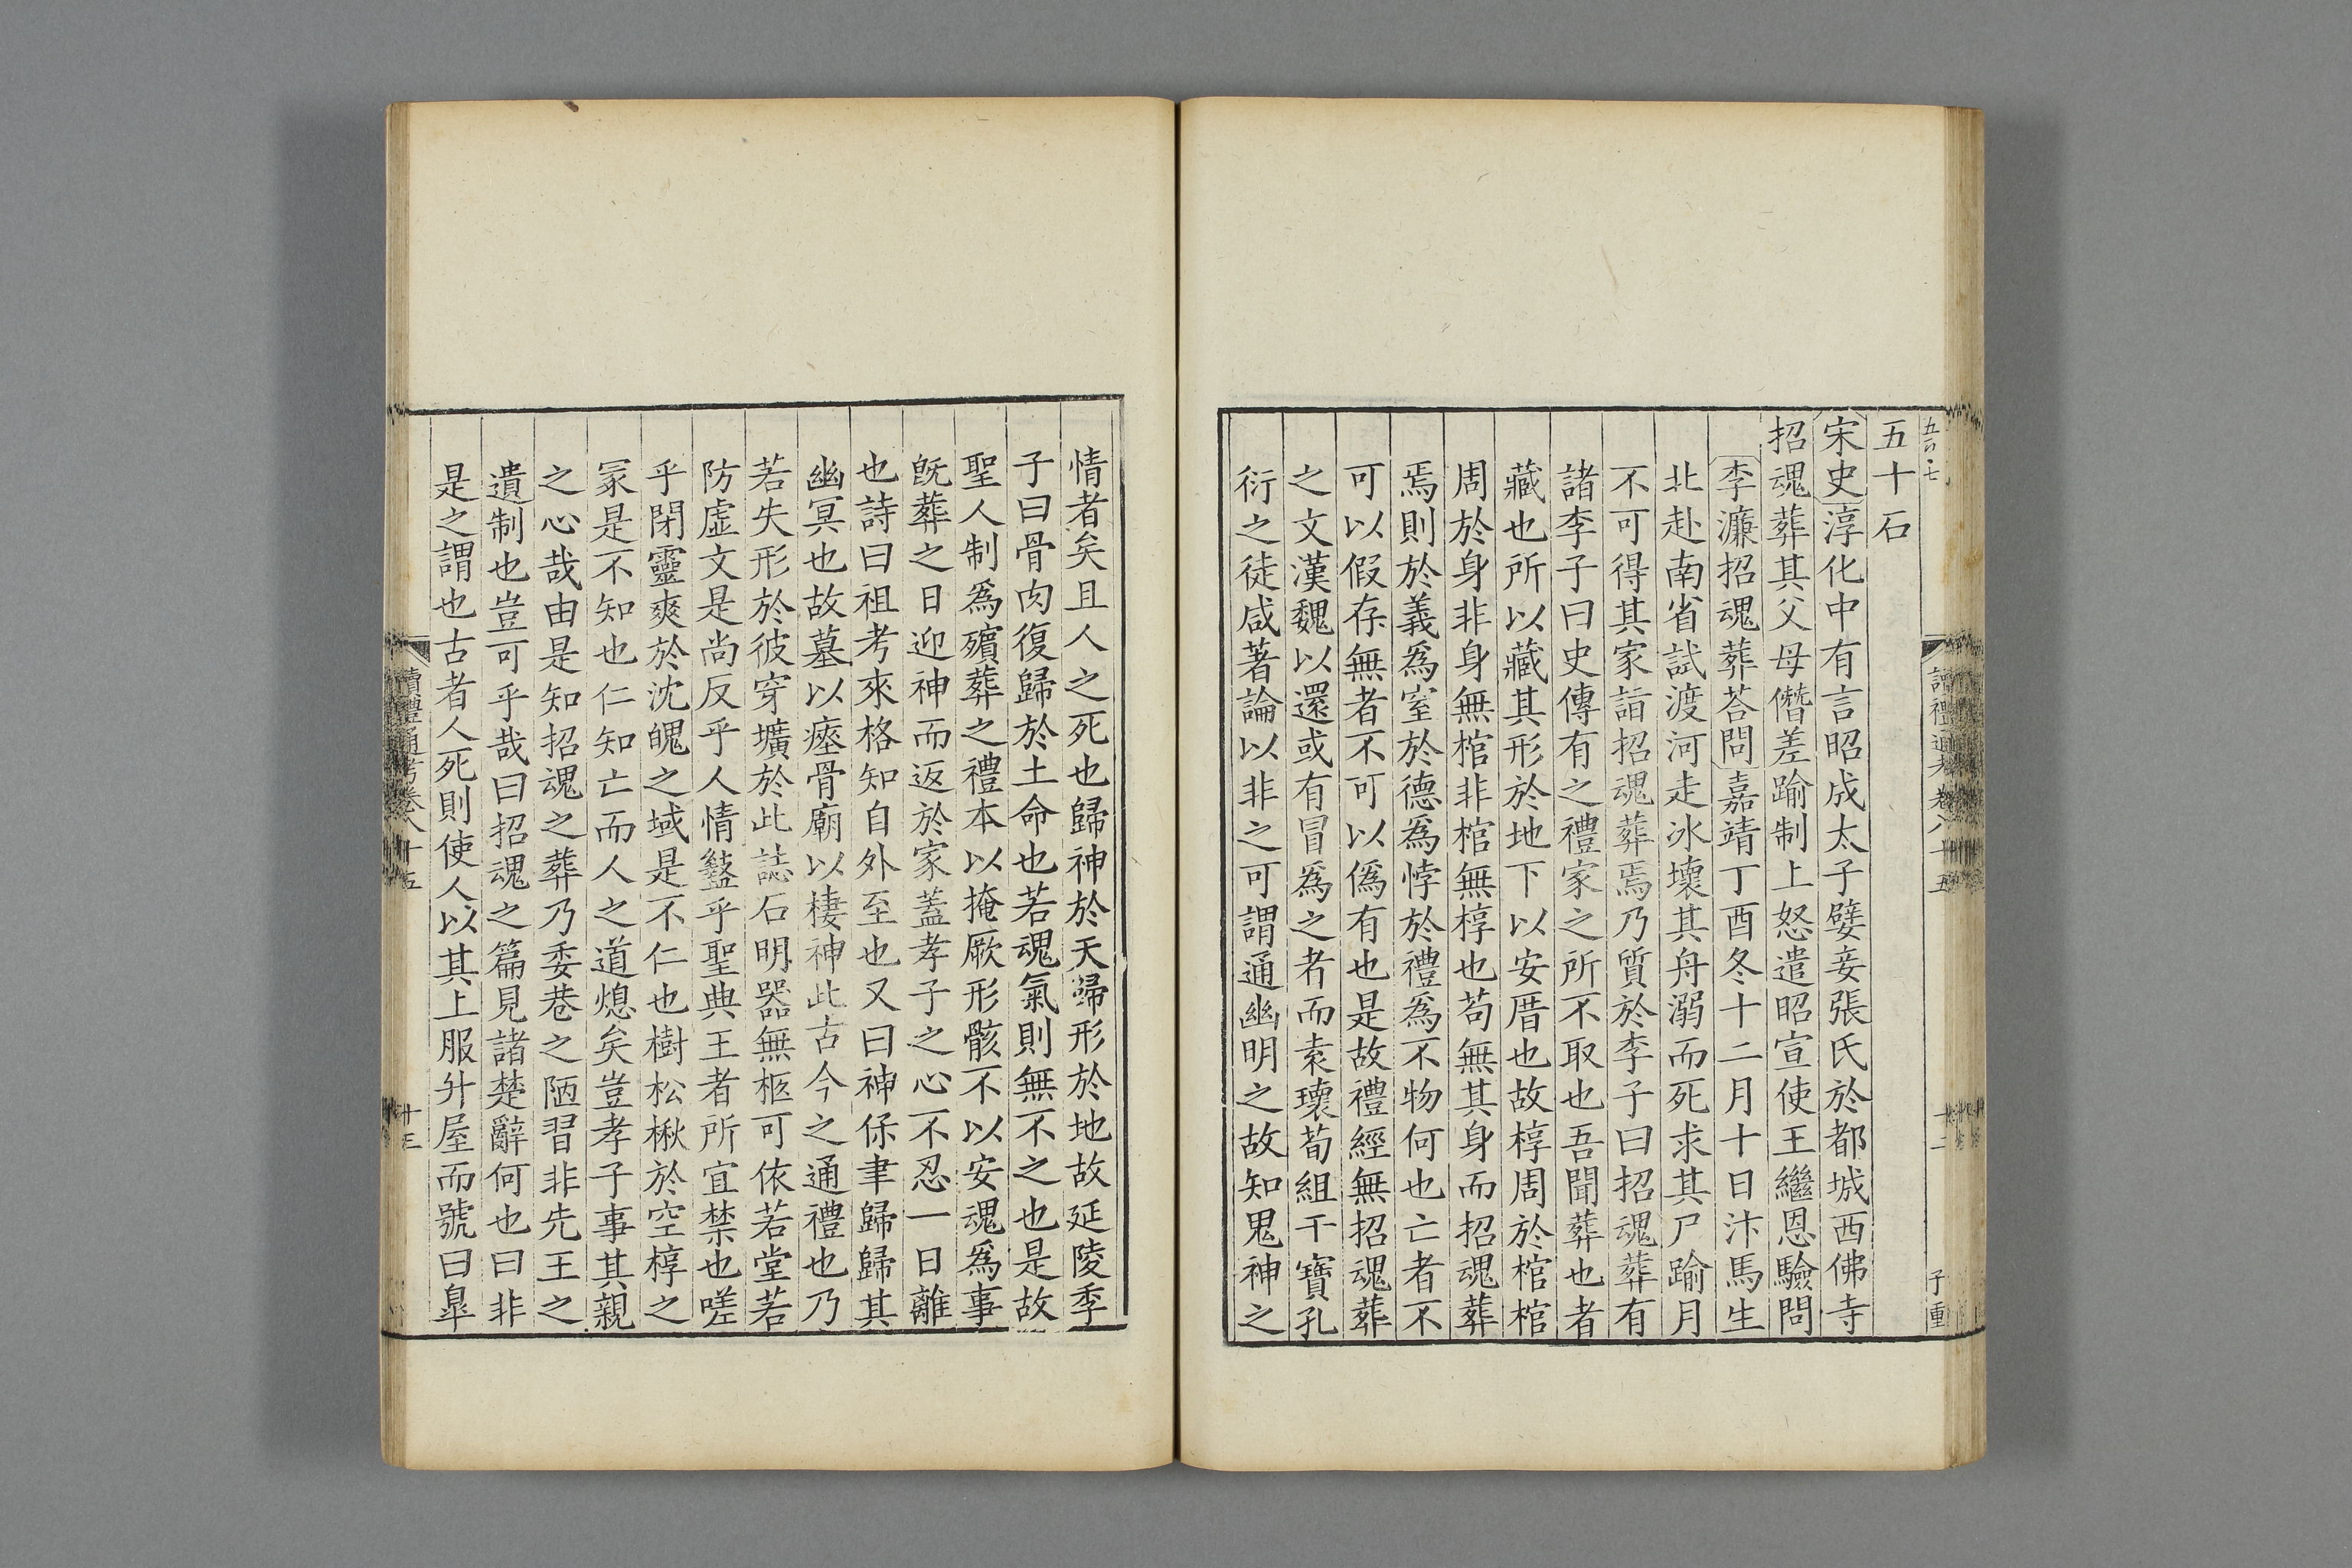 五十石
宋史淳化中有言昭成太子嬖妾張氏於都城西佛寺
招魂葬其父母僭差踰制上怒遣昭宣使王繼恩驗問
李濂招魂葬荅問嘉靖丁酉冬十二月十日汴馬生
北赴南省試渡河走冰壞其舟溺而死求其尸踰月
不可得其家詣招魂葬焉乃質於李子曰招魂葬有
諸李子曰史傳有之禮家之所不取也吾聞葬也者
藏也所以藏其形於地下以安厝也故椁周於棺棺
周於身非身無棺非棺無椁也苟無其身而招魂葬
焉則於義爲窒於德爲悖於禮爲不物何也亡者不
可以假存無者不可以僞有也是故禮經無招魂葬
之文漢魏以還或有冒爲之者而袁瓌荀組干寶孔
衍之徒咸著論以非之可謂通幽明之故知鬼神之
讀禮通考卷八十五
十二
子重
情者矣且人之死也歸神於天歸形於地故延陵季
子曰骨肉復歸於土命也若魂氣則無不之也是故
聖人制爲殯葬之禮本以掩厥形骸不以安魂爲事
旣葬之日迎神而返於家蓋孝子之心不忍一日離
也詩曰祖考來格知自外至也又曰神保聿歸歸其
幽冥也故墓以瘞骨廟以棲神此古今之通禮也乃
若失形於彼穿壙於此誌石明器無柩可依若堂若
防虛文是尚反乎人情盭乎聖典王者所宜禁也嗟
乎閉靈爽於沈魄之域是不仁也樹松楸於空椁之
冢是不知也仁知亡而人之道熄矣豈孝子事其親
之心哉由是知招魂之葬乃委巷之陋習非先王之
遺制也豈可乎哉曰招魂之篇見諸楚辭何也曰非
是之謂也古者人死則使人以其上服升屋而號曰臯
讀禮通考卷八十五
十三